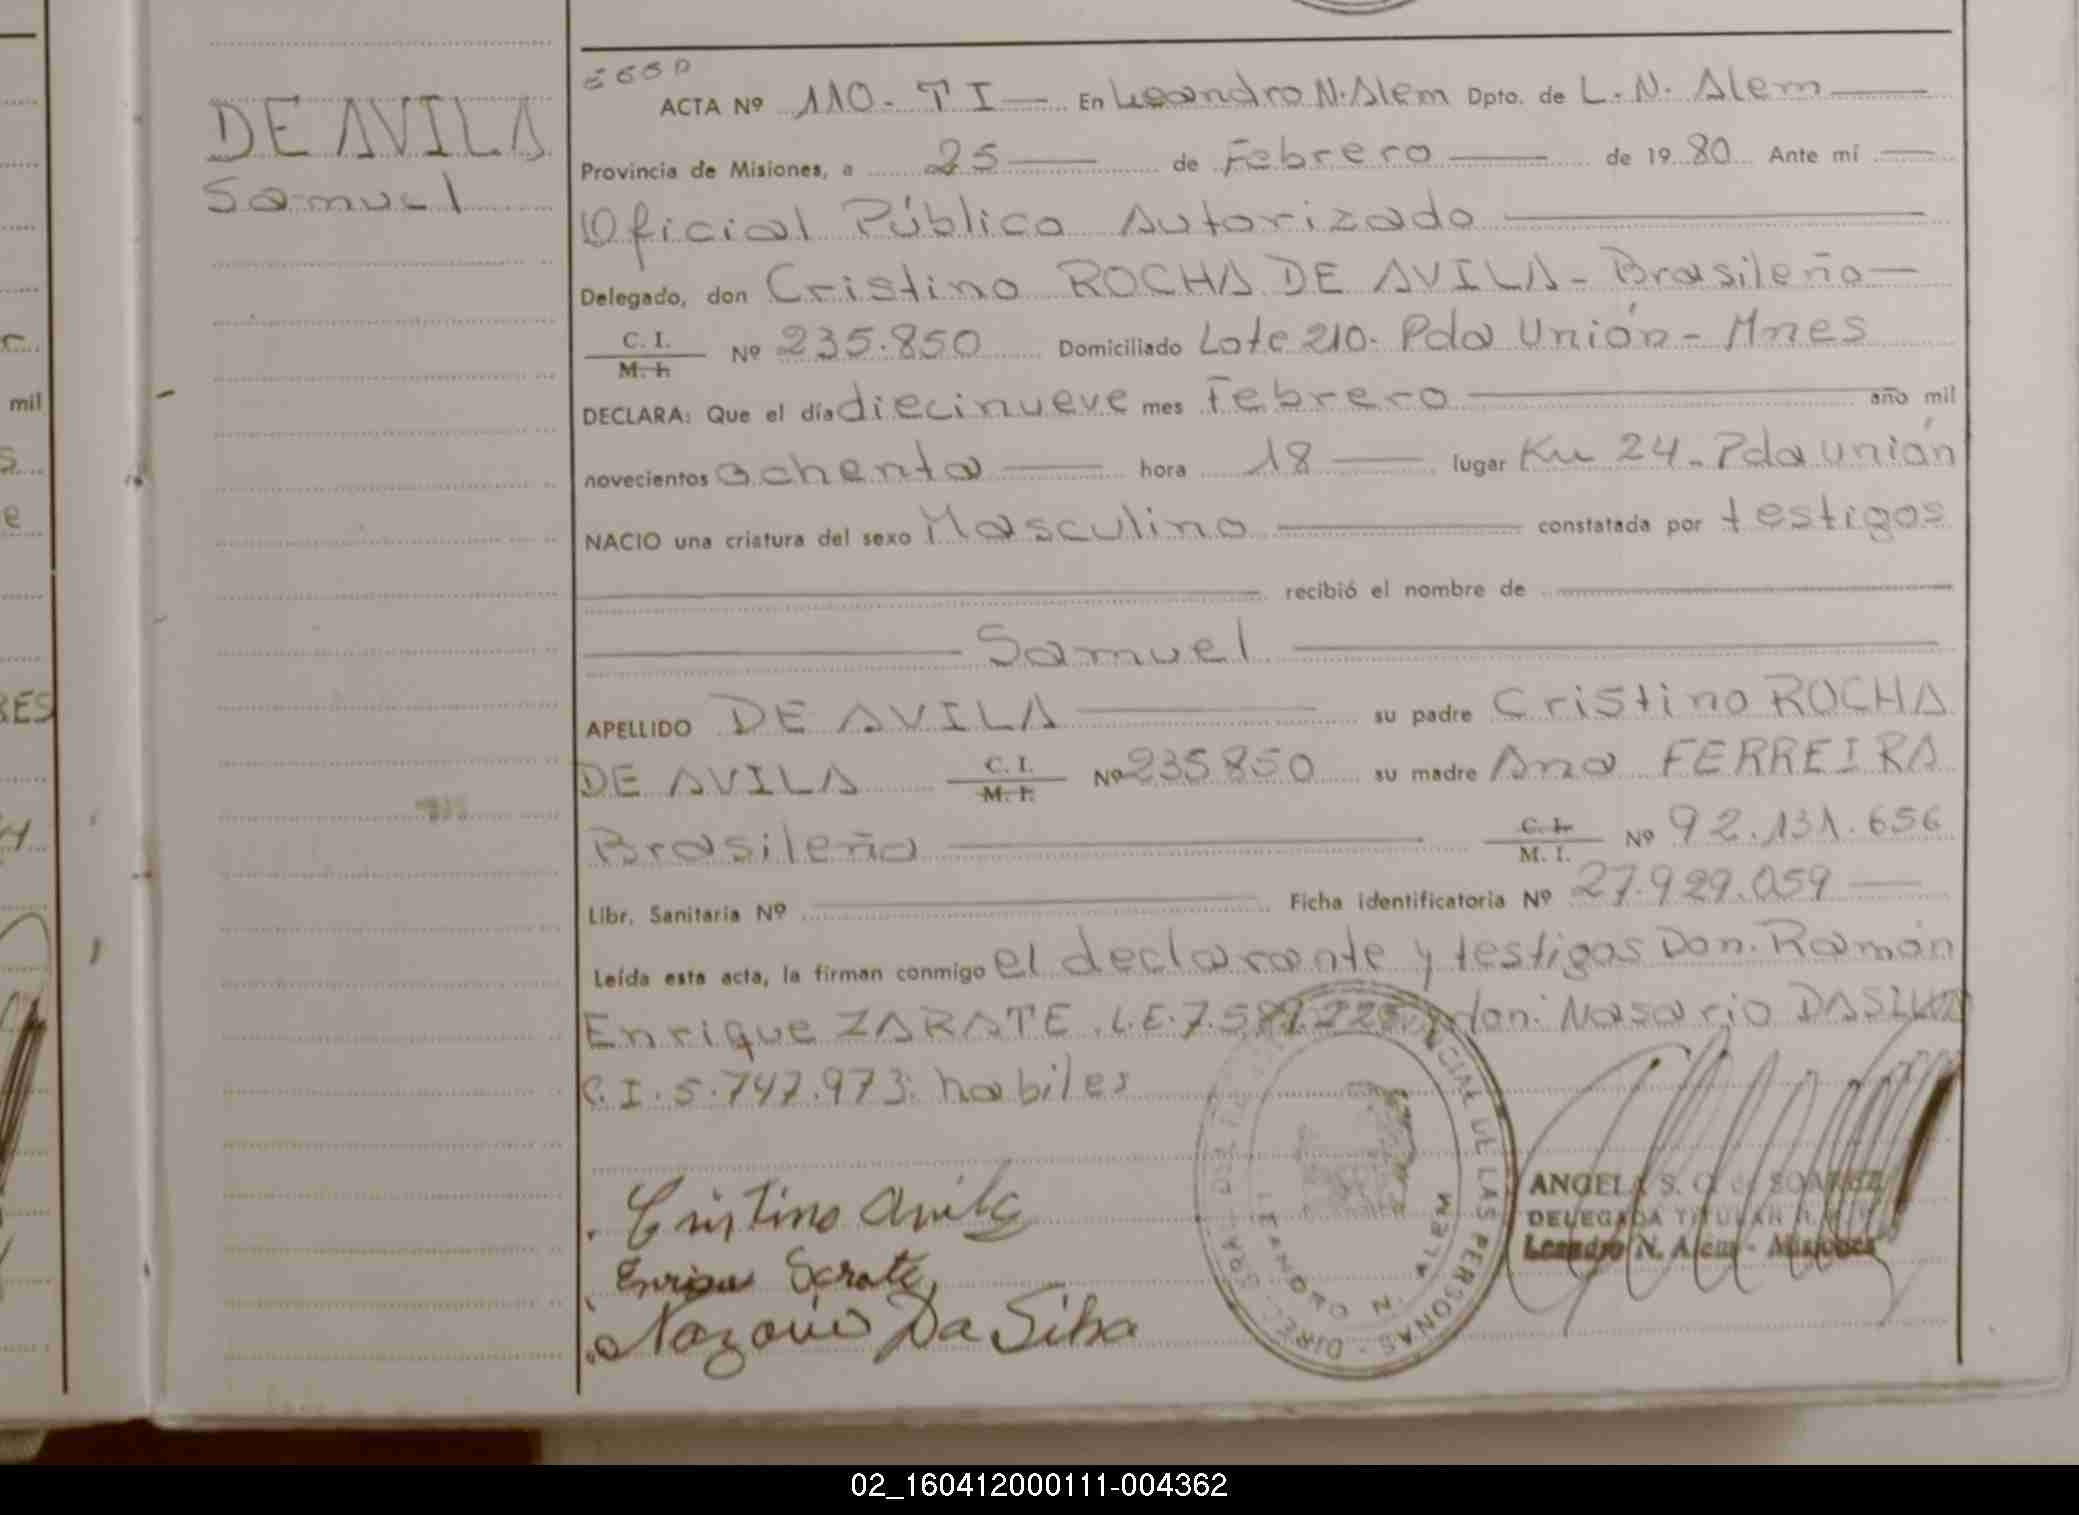 DE AVILA
Samuel
ACTA Nº 110. T I En Leandro N. Alem Dpto. de L. N. Alem
Provincia de Misiones, a 25 de Febrero de 1980 Ante mí
Oficial Público Autorizado
Delegado, don Cristino ROCHA DE AVILA - Brasileño
C. I. M. I. Nº 235.850 Domiciliado Lote 210. Pda Unión - Mnes
DECLARA: Que el día diecinueve mes Febrero año mil
novecientos ochenta hora 18 lugar Km 24 - Pda Unión
NACIO una criatura del sexo Masculino constatada por testigos
recibió el nombre de
Samuel
APELLIDO DE AVILA su padre Cristino ROCHA
DE AVILA C. I. M. I. Nº 235850 su madre Ana FERREIRA
Brasileña C. I. M. I. Nº 92.131.656
Libr. Sanitaria Nº Ficha identificatoria Nº 27.929.059
Leída esta acta, la firman conmigo el declarante y testigos Don. Ramón
Enrique ZARATE. L.E. don: Nasario DASILVA
C.I. 5.747.973. habiles
Cristino Avila
Enrique Sarate
Nazario Da Silva
DIREC. GRAL. PROVINCIAL DE LAS PERSONAS
LEANDRO N. ALEM
ANGELA S.
DELEGADA TITULAR
Leandro N. Alem - Misiones
mil
s
e
RES
02_160412000111-004362